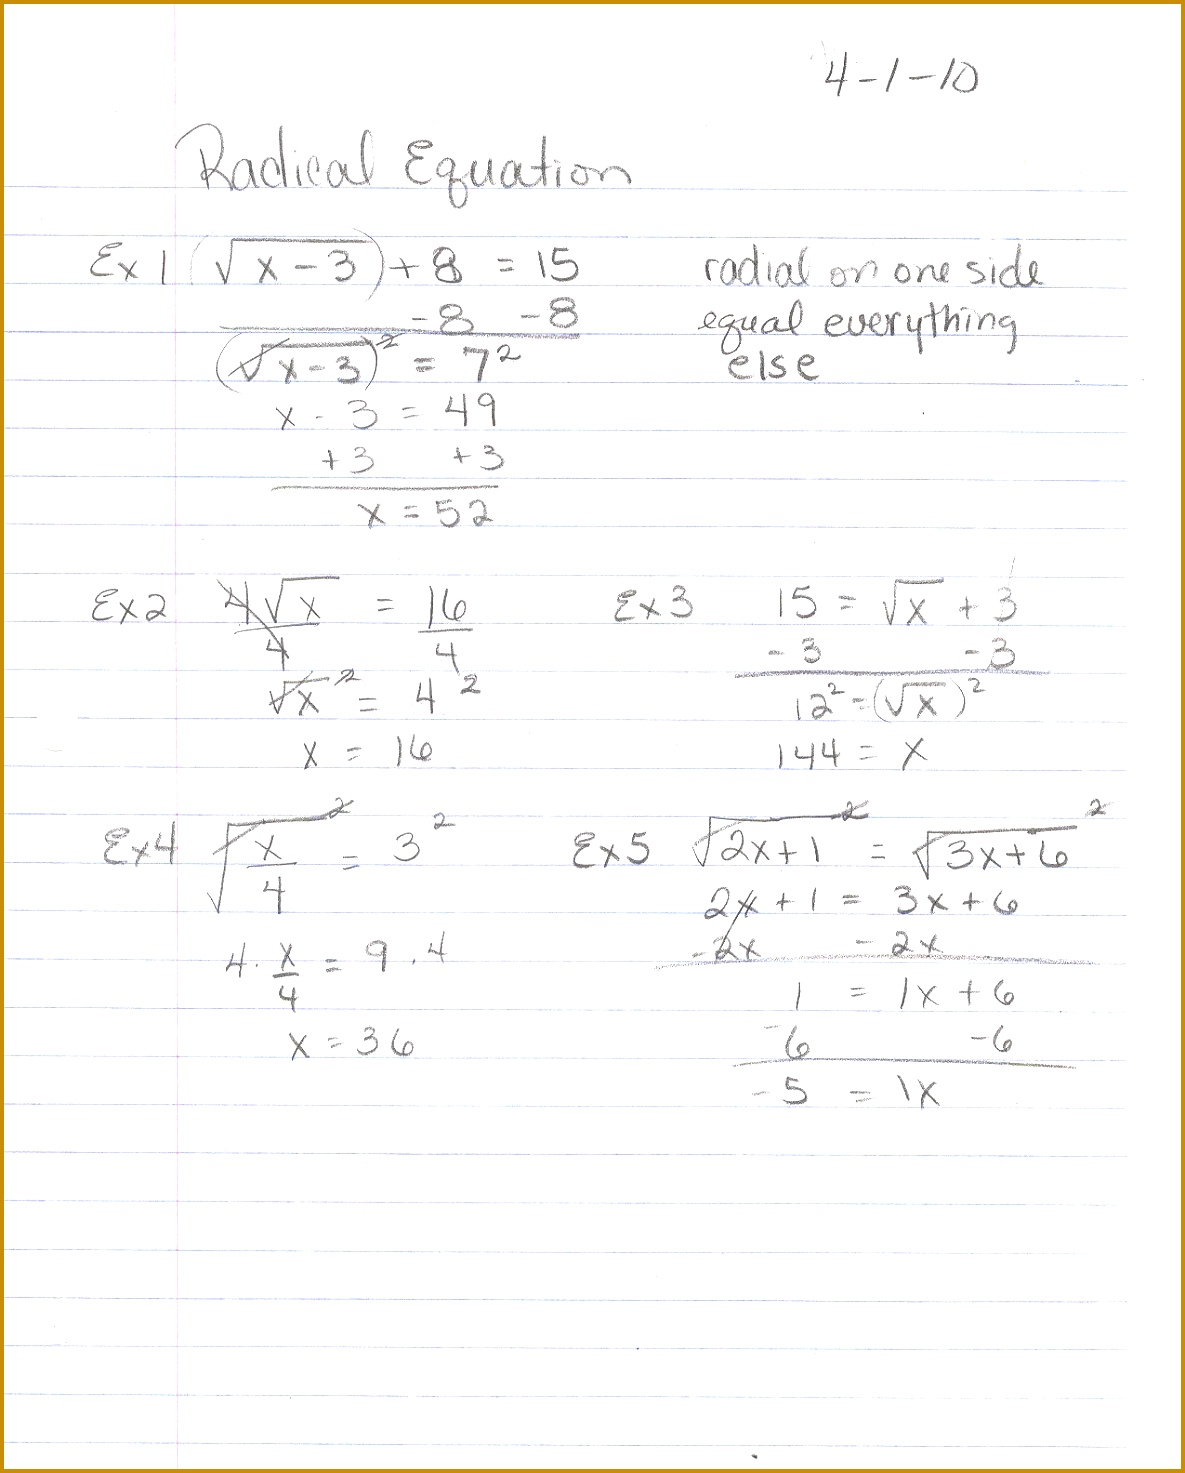 4-1-10
Radical Equation
Ex 1 (√(x-3)) + 8 = 15
-8 -8
(√(x-3))² = 7²
x - 3 = 49
+3 +3
x = 52
radial on one side
equal everything
else
Ex2 4√x/4 = 16/4
√x² = 4²
x = 16
Ex3 15 = √x + 3
-3 -3
12² = (√x)²
144 = x
Ex4 √(x/4)² = 3²
4 · x/4 = 9 · 4
x = 36
Ex5 √(2x+1)² = √(3x+6)²
2x + 1 = 3x + 6
-2x -2x
1 = 1x + 6
-6 -6
-5 = 1x